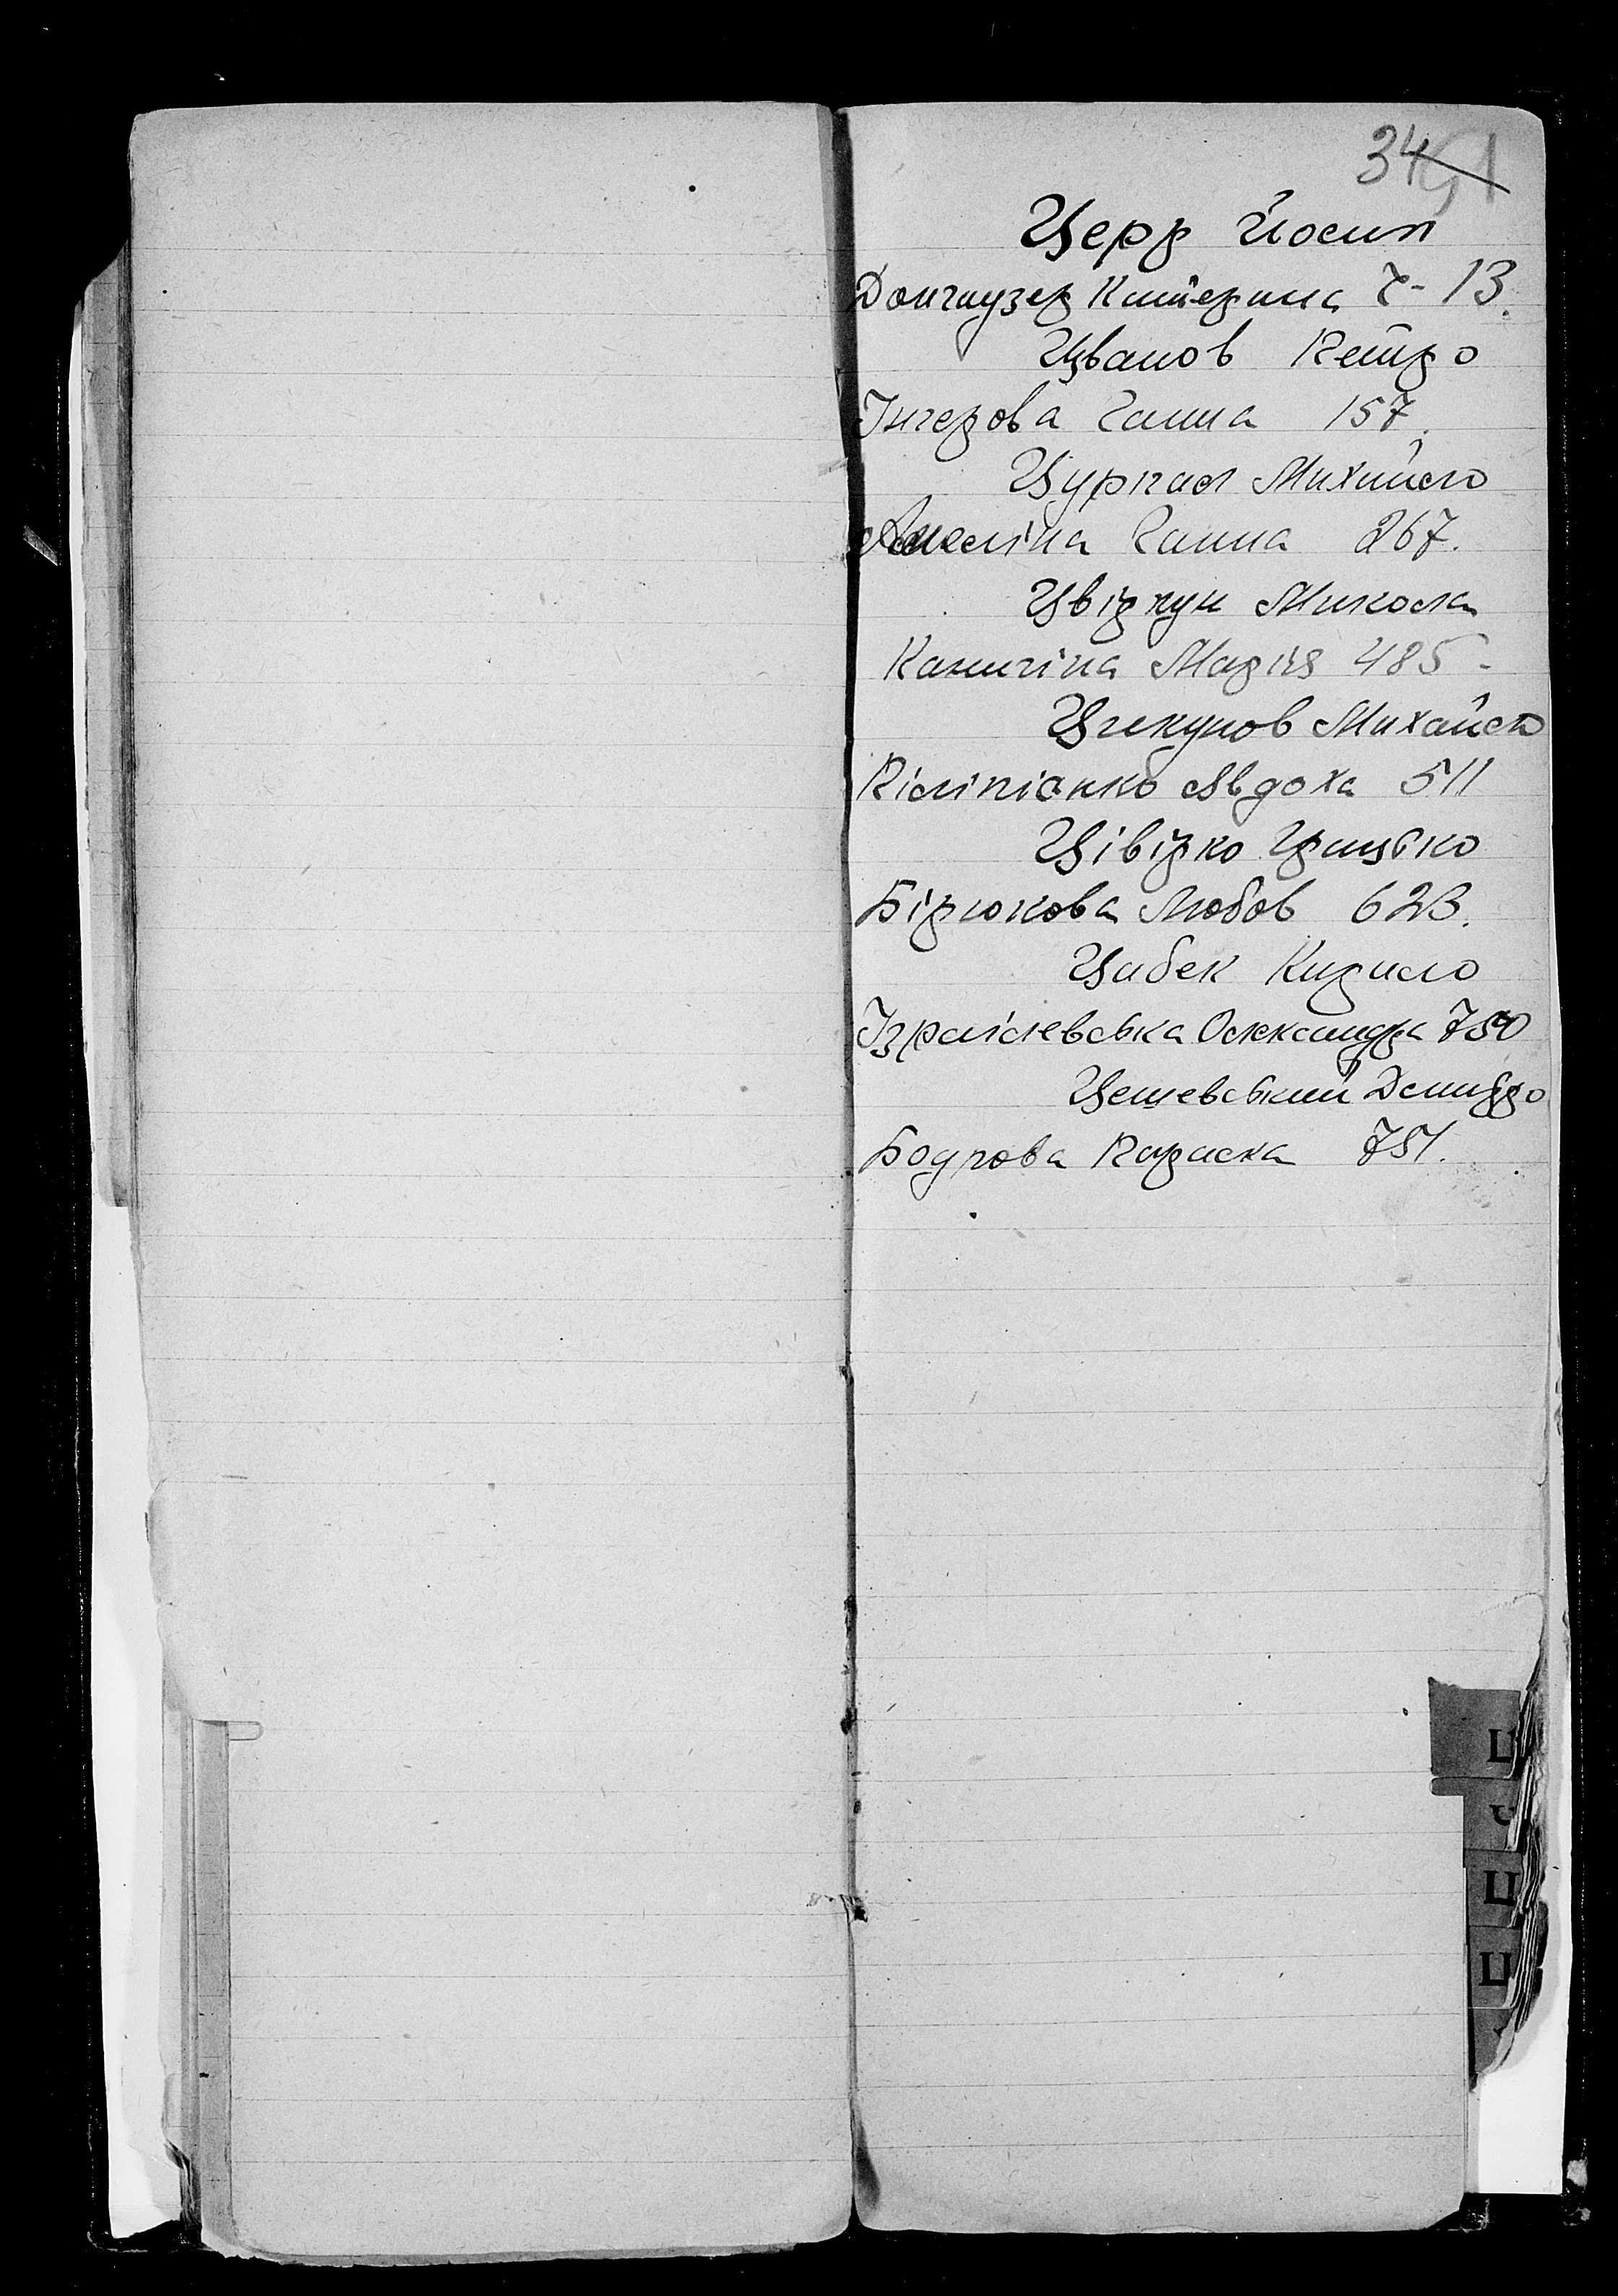 34
Церр Йосип
Донгаузер Катерина 7-13.
Цванов Петро
Інгерова Ганна 157.
Цуркал Михайло
Ганна 267.
Цвіркун Микола
Каничіна Марія 485-
Цикунов Михайло
Піліпіанко Явдоха 511
Цівірко Грицько
Бірюкова Любов 623.
Цабек Кирило
Ізраілевська Олександра 750
Цешевський Дмитро
Бодрова Параска 751.
Ц
Ч
Ц
Ц